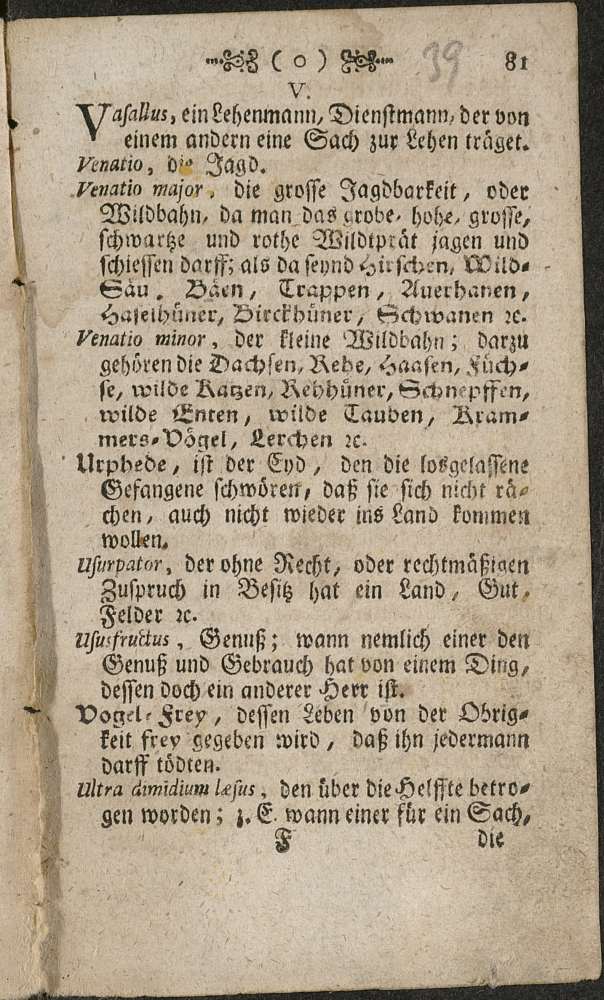 ( o ) 39 81
V.
Vasallus, ein Lehenmann, Dienstmann, der von
einem andern eine Sach zur Lehen träget.
Venatio, die Jagd.
Venatio major, die grosse Jagdbarkeit, oder
Wildbahn, da man das grobe, hohe, grosse,
schwartze und rothe Wildtprät jagen und
schiessen darff; als da seynd Hirschen, Wild-
Säu, Bäen, Trappen, Auerhanen,
Haselhüner, Birckhüner, Schwanen ꝛc.
Venatio minor, der kleine Wildbahn; darzu
gehören die Dachsen, Rehe, Haasen, Füch-
se, wilde Katzen, Rebhüner, Schnepffen,
wilde Enten, wilde Tauben, Kram-
mers-Vögel, Lerchen ꝛc.
Urphede, ist der Eyd, den die losgelassene
Gefangene schwören, daß sie sich nicht rä-
chen, auch nicht wieder ins Land kommen
wollen.
Usurpator, der ohne Recht, oder rechtmäßigen
Zuspruch in Besitz hat ein Land, Gut,
Felder ꝛc.
Ususfructus, Genuß; wann nemlich einer den
Genuß und Gebrauch hat von einem Ding,
dessen doch ein anderer Herr ist.
Vogel-Frey, dessen Leben von der Obrig-
keit frey gegeben wird, daß ihn jedermann
darff tödten.
Ultra dimidium læsus, den über die Helffte betro-
gen worden; z. E. wann einer für ein Sach,
F die